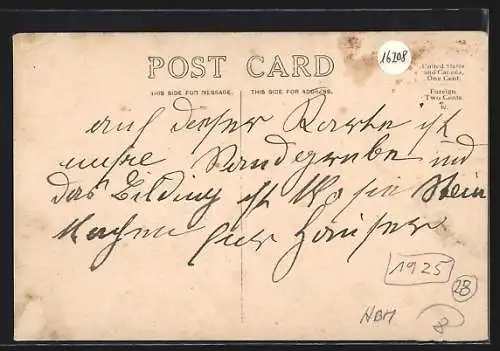 16208
POST CARD
United States
and Canada,
One Cent.
Foreign
Two Cents.
N.
THIS SIDE FOR MESSAGE.
THIS SIDE FOR ADDRESS.
auf dieser Karte ist
unsre Sandgrube und
das Bilding ist Wo sie Stein
Machen fier Heuser
1925
28
NBM
8